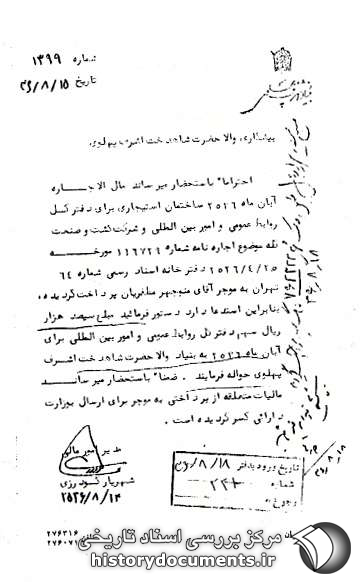 شماره ۱۳۹۹
تاریخ ۳۶/۸/۱۵
پیشکاری والا حضرت شاهدخت اشرف پهلوی
احتراما" باستحضار میرساند مال الاجاره
آبان ماه ۲۵۳۶ ساختمان استیجاری برای دفتر کل
روابط عمومی و امور بین المللی و شرکت کشت و صنعت
موضوع اجاره نامه شماره ۱۱۶۷۲۹ مورخه
۲۵۳۶/۴/۲۵ دفترخانه اسناد رسمی شماره ۶۴
تهران به موجر آقای منوچهر مظفریان پرداخت گردیده،
بنابراین استدعا دارد دستور فرمائید مبلغ سیصد هزار
ریال سهم دفتر کل روابط عمومی و امور بین المللی برای
آبان ماه ۲۵۳۶ به بنیاد والا حضرت شاهدخت اشرف
پهلوی حواله فرمایند . ضمنا" باستحضار میرساند
مالیات متعلقه از پرداختی به موجر برای ارسال بوزارت
دارائی کسر گردیده است .
مدیر امور مالی
شهریار
۲۵۳۶/۸/۱۴
تاریخ ورود بدفتر ۳۶/۸/۱۸
شماره
رجوع به
۲۷۶۳۱۶
مرکز بررسی اسناد تاریخی
historydocuments.ir